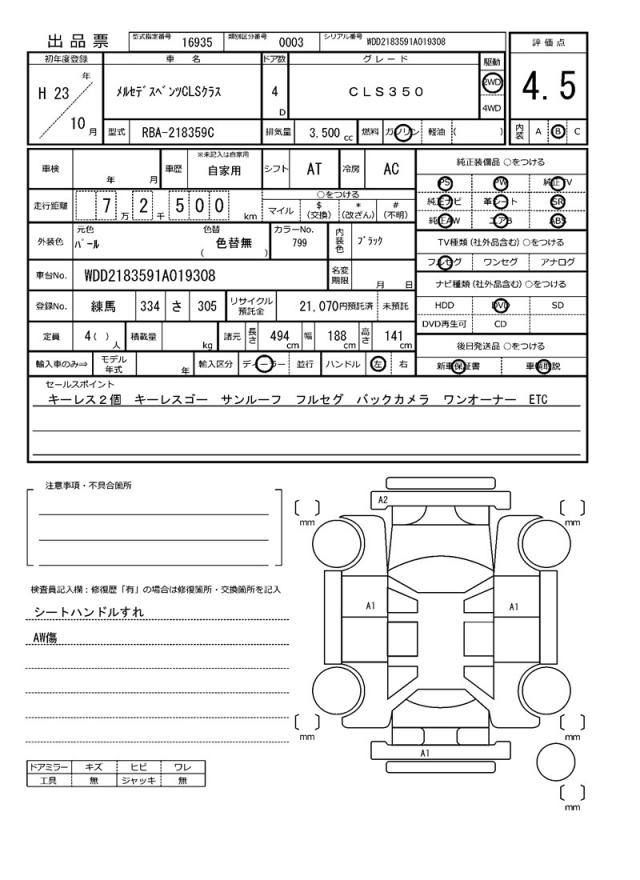 出品票 型式指定番号 16935 類別区分番号 0003 シリアル番号 WDD2183591A019308
評価点
4.5
内装 A B C
初年度登録 車名 ドア数 グレード 駆動
H 23 年 10 月 メルセデスベンツCLSクラス 4 D CLS350 2WD 4WD
型式 RBA-218359C 排気量 3,500 cc 燃料 ガソリン 軽油 ( )
車検 年 月 車歴 ※未記入は自家用 自家用 シフト AT 冷房 AC
走行距離 7 万 2 千 5 0 0 km ○をつける
マイル $ (交換) * (改ざん) # (不明)
外装色 元色 パール 色替 色替無 ( ) カラーNo. 799 内装色 ブラック
車台No. WDD2183591A019308 名変期限 月 日
登録No. 練馬 334 さ 305 リサイクル預託金 21,070円預託済 未預託
定員 4( ) 人 積載量 kg 諸元 長さ 494 cm 幅 188 cm 高さ 141 cm
輸入車のみ⇒ モデル年式 年 輸入区分 ディーラー 並行 ハンドル 左 右
純正装備品 ○をつける
PS PW 純正TV
純正ナビ 革シート SR
純正AW エアB ABS
TV種類(社外品含む)○をつける
フルセグ ワンセグ アナログ
ナビ種類(社外品含む)○をつける
HDD DVD SD
DVD再生可 CD
後日発送品 ○をつける
新車保証書 車輌取説
セールスポイント
キーレス2個 キーレスゴー サンルーフ フルセグ バックカメラ ワンオーナー ETC
注意事項・不具合箇所
検査員記入欄:修復歴「有」の場合は修復箇所・交換箇所を記入
シートハンドルすれ
AW傷
ドアミラー キズ ヒビ ワレ
工具 無 ジャッキ 無
A2
mm mm
A1 A1
mm mm
A1
mm